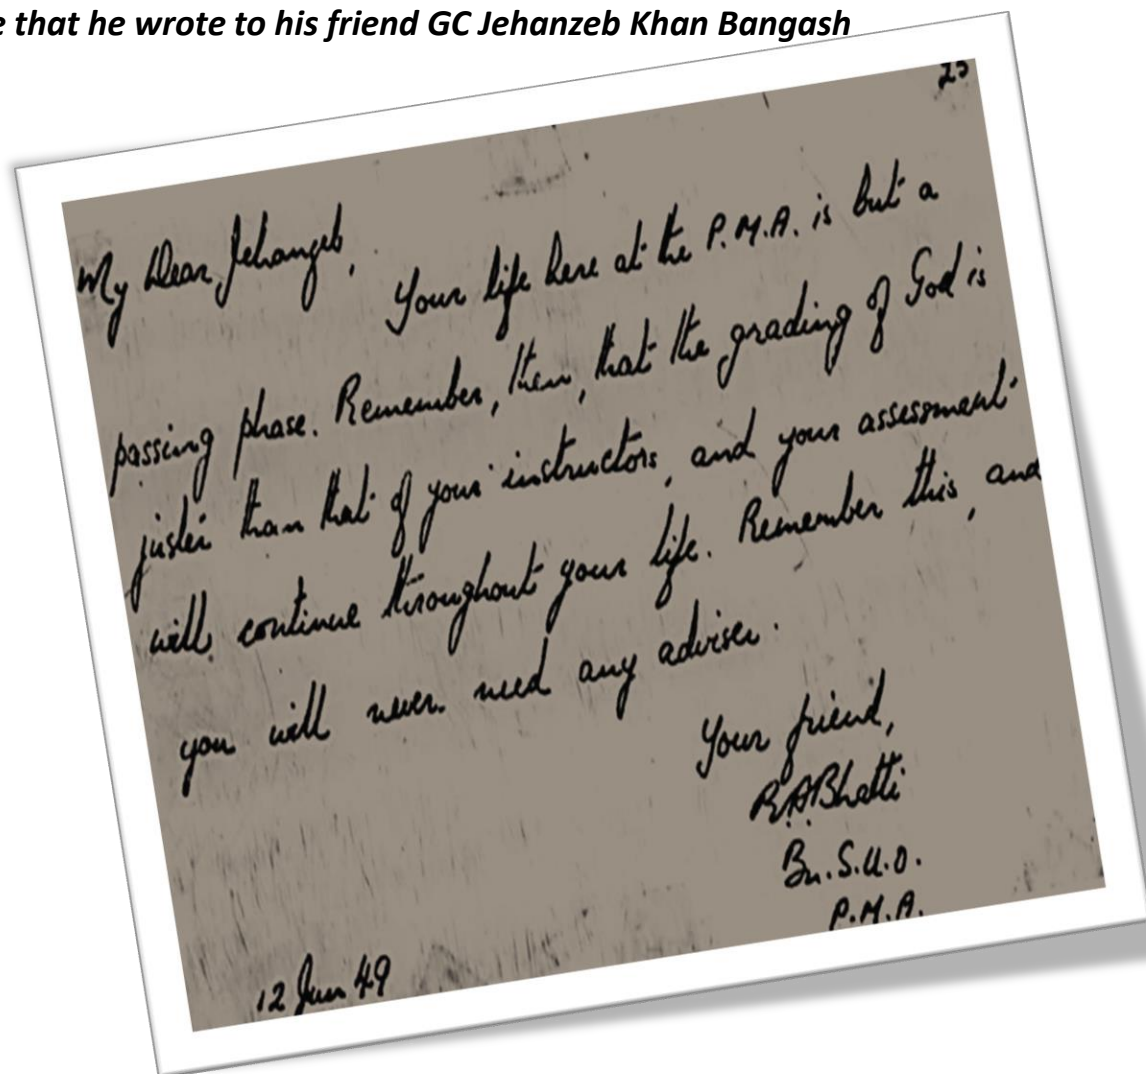 e that he wrote to his friend GC Jehanzeb Khan Bangash
25
My Dear Jehanzeb,
Your life here at the P.M.A. is but a
passing phase. Remember, then, that the grading of God is
juster than that of your instructors, and your assessment
will continue throughout your life. Remember this, and
you will never need any adviser.
Your friend,
R.A.Bhatti
Bn.S.U.O.
P.M.A.
12 Jun 49